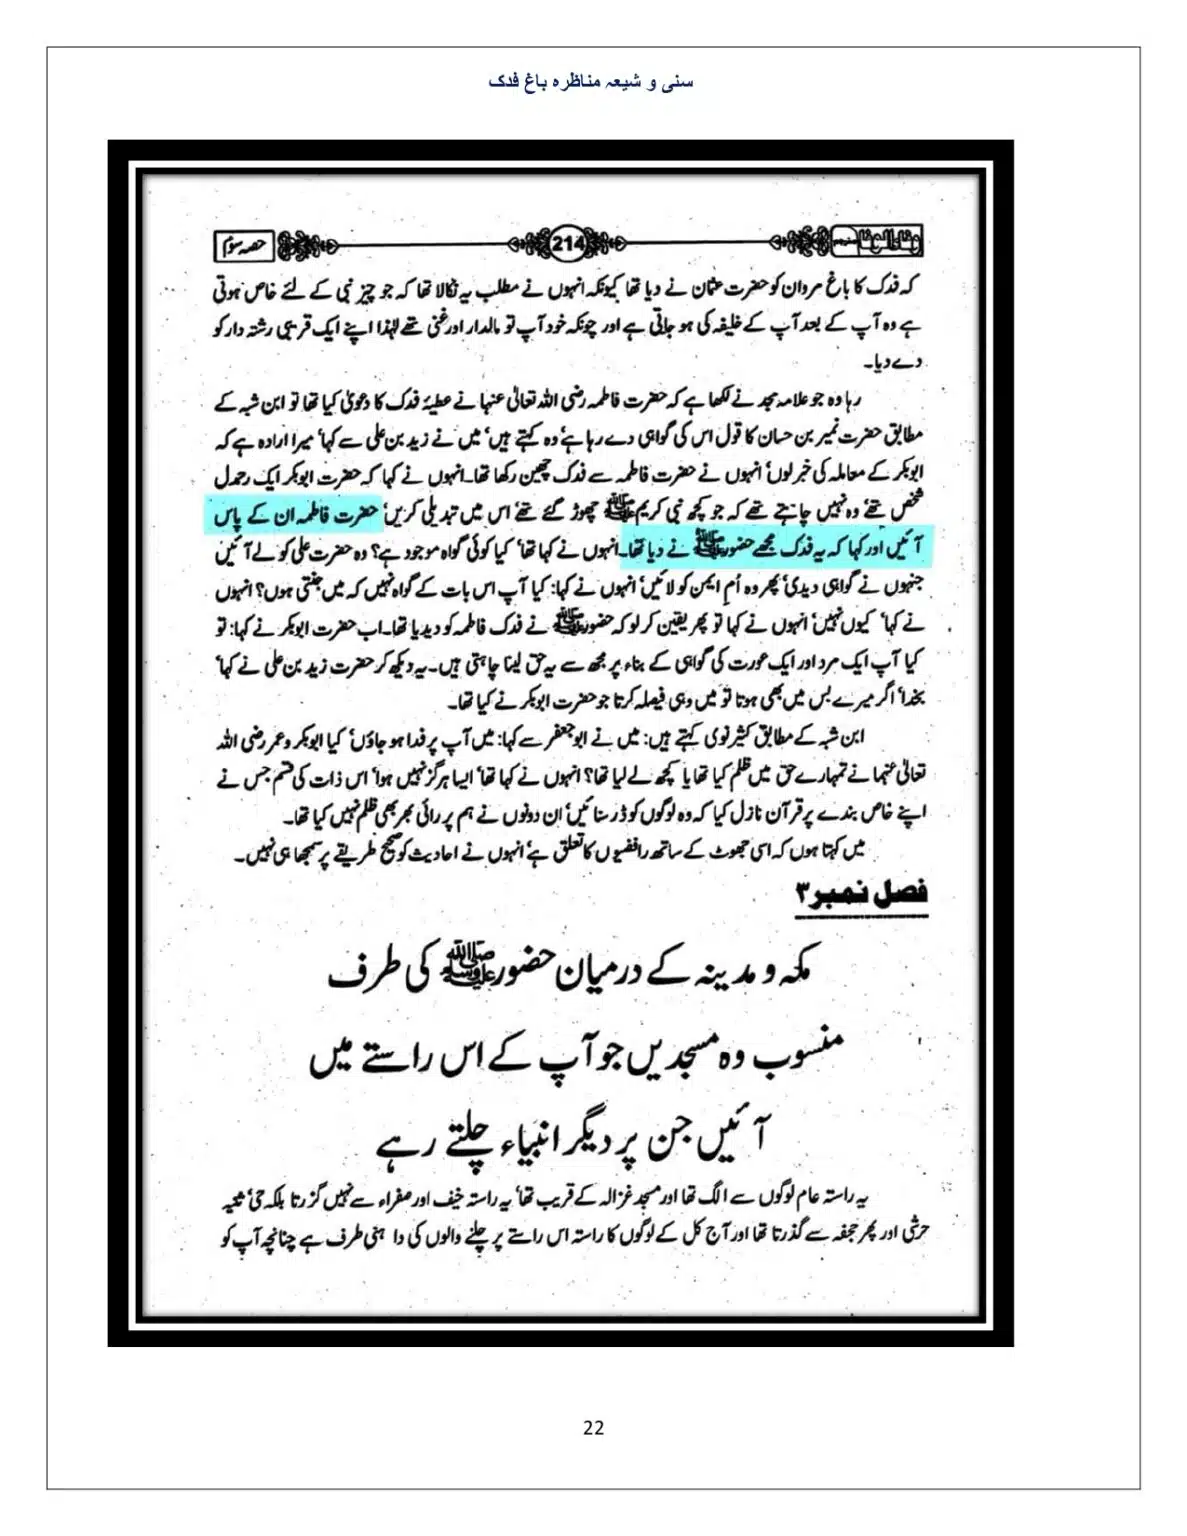 سنی و شیعہ مناظرہ باغ فدک
وفاء الوفا
214
حصہ سوم
کہ فدک کا باغ مروان کو حضرت عثمان نے دیا تھا کیونکہ انہوں نے مطلب یہ نکالا تھا کہ جو چیز نبی کے لئے خاص ہوتی
ہے وہ آپ کے بعد آپ کے خلیفہ کی ہو جاتی ہے اور چونکہ خود آپ تو مالدار اور غنی تھے لہٰذا اپنے ایک قریبی رشتہ دار کو
دے دیا۔
رہا وہ جو علامہ مجد نے لکھا ہے کہ حضرت فاطمہ رضی اللہ تعالیٰ عنہا نے عطیۂ فدک کا دعویٰ کیا تھا تو ابن شبہ کے
مطابق حضرت نمیر بن حسان کا قول اس کی گواہی دے رہا ہے، وہ کہتے ہیں، میں نے زید بن علی سے کہا، میرا ارادہ ہے کہ
ابوبکر کے معاملہ کی خبر لوں، انہوں نے حضرت فاطمہ سے فدک چھین رکھا تھا۔ انہوں نے کہا کہ حضرت ابوبکر ایک رحمدل
شخص تھے، وہ نہیں چاہتے تھے کہ جو کچھ نبی کریم ﷺ چھوڑ گئے تھے، اس میں تبدیلی کریں، حضرت فاطمہ ان کے پاس
آئیں اور کہا کہ یہ فدک مجھے حضور ﷺ نے دیا تھا۔ انہوں نے کہا تھا، کیا کوئی گواہ موجود ہے؟ وہ حضرت علی کو لے آئیں
جنہوں نے گواہی دیدی، پھر وہ اُمِ ایمن کو لائیں، انہوں نے کہا: کیا آپ اس بات کے گواہ نہیں کہ میں جنتی ہوں؟ انہوں
نے کہا، کیوں نہیں، انہوں نے کہا تو پھر یقین کر لو کہ حضور ﷺ نے فدک فاطمہ کو دیدیا تھا۔ اب حضرت ابوبکر نے کہا: تو
کیا آپ ایک مرد اور ایک عورت کی گواہی کے بناء پر مجھ سے یہ حق لینا چاہتی ہیں۔ یہ دیکھ کر حضرت زید بن علی نے کہا،
بخدا، اگر میرے بس میں بھی ہوتا تو میں وہی فیصلہ کرتا جو حضرت ابوبکر نے کیا تھا۔
ابن شبہ کے مطابق کثیر نوی کہتے ہیں: میں نے ابو جعفر سے کہا: میں آپ پر فدا ہو جاؤں، کیا ابوبکر و عمر رضی اللہ
تعالیٰ عنہما نے تمہارے حق میں ظلم کیا تھا یا کچھ لے لیا تھا؟ انہوں نے کہا تھا، ایسا ہرگز نہیں ہوا، اس ذات کی قسم جس نے
اپنے خاص بندے پر قرآن نازل کیا کہ وہ لوگوں کو ڈر سنائیں، ان دونوں نے ہم پر رائی بھر بھی ظلم نہیں کیا تھا۔
میں کہتا ہوں کہ اسی جھوٹ کے ساتھ رافضیوں کا تعلق ہے، انہوں نے احادیث کو صحیح طریقے پر سمجھا ہی نہیں۔
فصل نمبر ۳
مکہ و مدینہ کے درمیان حضور ﷺ کی طرف
منسوب وہ مسجدیں جو آپ کے اس راستے میں
آئیں جن پر دیگر انبیاء چلتے رہے
یہ راستہ عام لوگوں سے الگ تھا اور مسجد غزالہ کے قریب تھا، یہ راستہ خیف اور صفراء سے نہیں گزرتا بلکہ حی، ثنیہ
حرشی اور پھر جحفہ سے گذرتا تھا اور آج کل کے لوگوں کا راستہ اس راستے پر چلنے والوں کی داہنی طرف ہے چنانچہ آپ کو
22